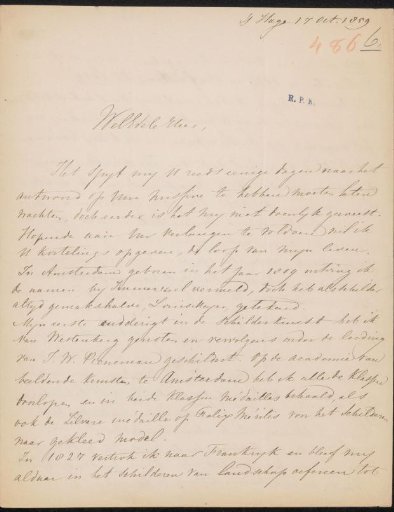 's Hage 17 Oct. 1859
486 6.
R.P.K.
WelEdele Heer,
Het spyt my U reeds eenige dagen naar het
antwoord op Uwe missive te hebben moeten laten
wachten, doch eerder is het my niet doenlyk geweest.
Hopende aan Uw verlangen te voldoen wil ik
U kortelings opgeven, de loop van mijn leven.
In Amsterdam geboren in het jaar 1809 ontving ik
de namen by vermeld, doch heb als schilder
altyd gemakshalve Louis geteekend.
Myn eerste onderrigt in de schilderkunst heb ik
van Westenberg genoten en vervolgens onder de leiding
van J. W. Pieneman geschilderd. Op de academie van
beeldende kunsten te Amsterdam heb ik alle de klassen
doorlopen en in beide klassen médailles behaald, als
ook de zilvere médaille of van het schilderen
naar gekleed model.
In 1827 vertrok ik naar Frankryk en bleef my
aldaar in het schilderen van landschap oefenen tot